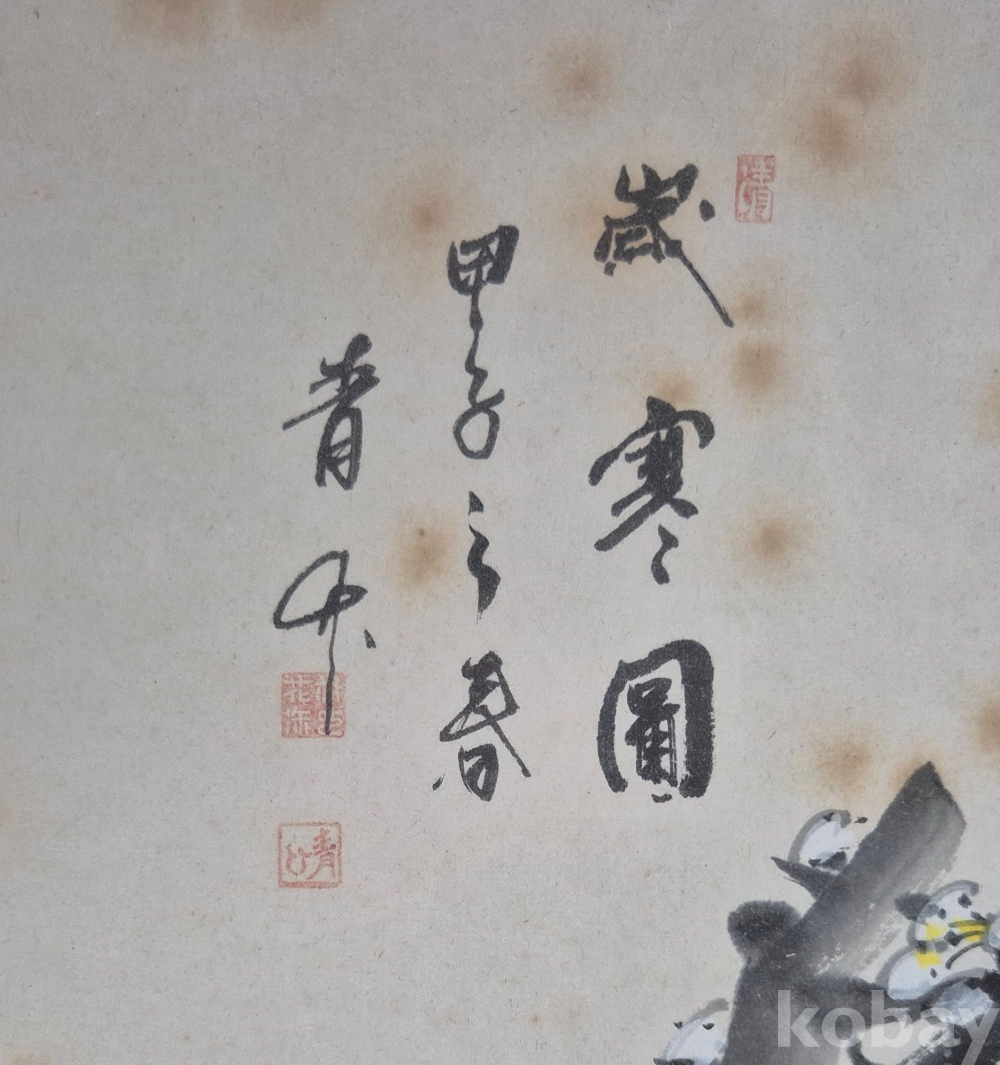 歲寒圖
甲子之春
靑竹
kobay